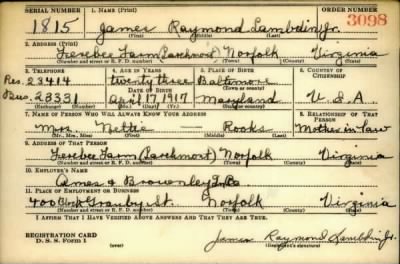 SERIAL NUMBER 1. NAME (Print) ORDER NUMBER
1815 James Raymond Lambdin Jr. 3098
(First) (Middle) (Last)
2. ADDRESS (Print)
Ferebee Farm (Larchmont) Norfolk Virginia
(Number and street or R. F. D. number) (Town) (County) (State)
3. TELEPHONE 4. AGE IN YEARS 5. PLACE OF BIRTH 6. COUNTRY OF CITIZENSHIP
Res. 23414 twenty three Baltimore
DATE OF BIRTH (Town or county)
Bus. 23331 April 17 1917 Maryland U.S.A.
(Mo.) (Day) (Yr.) (State or country)
7. NAME OF PERSON WHO WILL ALWAYS KNOW YOUR ADDRESS 8. RELATIONSHIP OF THAT PERSON
Mrs. Nettie Rooks Mother in law
(Mr., Mrs., Miss) (First) (Middle) (Last)
9. ADDRESS OF THAT PERSON
Ferebee Farm (Larchmont) Norfolk Virginia
(Number and street or R. F. D. number) (Town) (County) (State)
10. EMPLOYER'S NAME
Ames & Brownley Inc.
11. PLACE OF EMPLOYMENT OR BUSINESS
400 Block Granby St. Norfolk Virginia
(Number and street or R. F. D. number) (Town) (County) (State)
I AFFIRM THAT I HAVE VERIFIED ABOVE ANSWERS AND THAT THEY ARE TRUE.
REGISTRATION CARD
D. S. S. Form 1 (over) James Raymond Lambdin Jr.
(Registrant's signature)